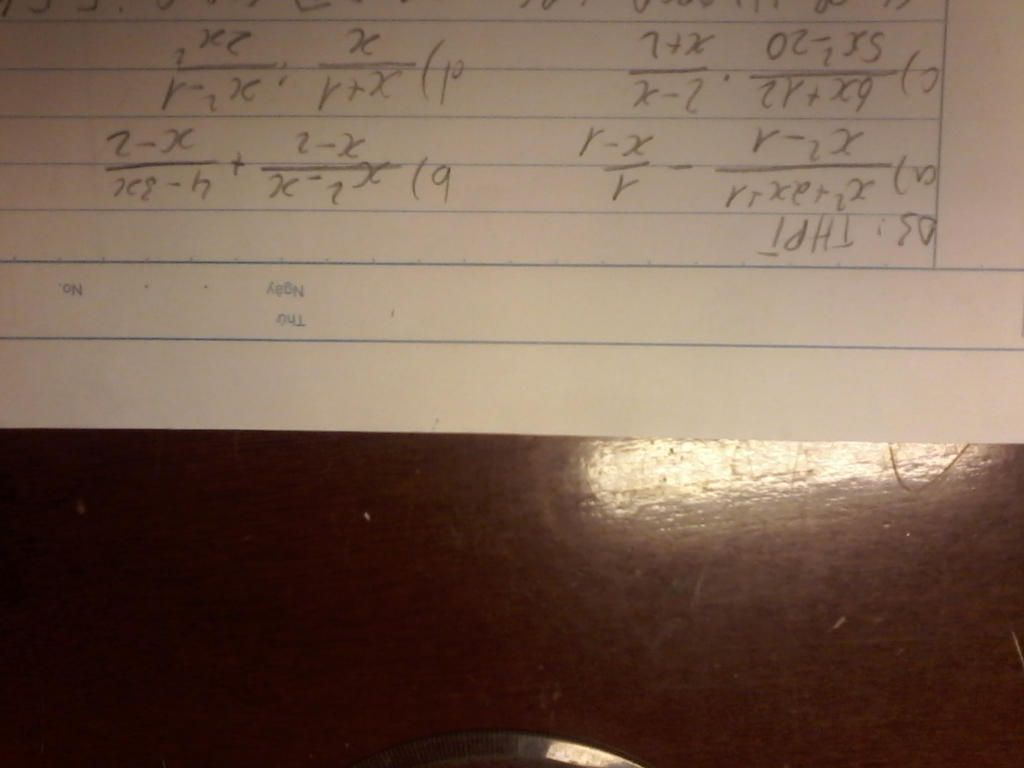 Thứ
Ngày No.
B3: THPT
a) x²+2x+1 / x²-1 - 1 / x-1 b) x²-x / x-2 + 4-3x / x-2
c) 6x+12 / 5x²-20 . 2-x / x+2 d) x+1 / x : x²-1 / 2x²